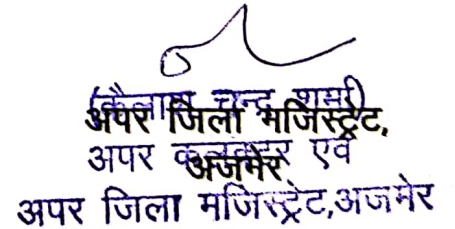 (कैलाश चन्द शर्मा)
अपर जिला मजिस्ट्रेट,
अपर कलक्टर एवं
अजमेर
अपर जिला मजिस्ट्रेट,अजमेर